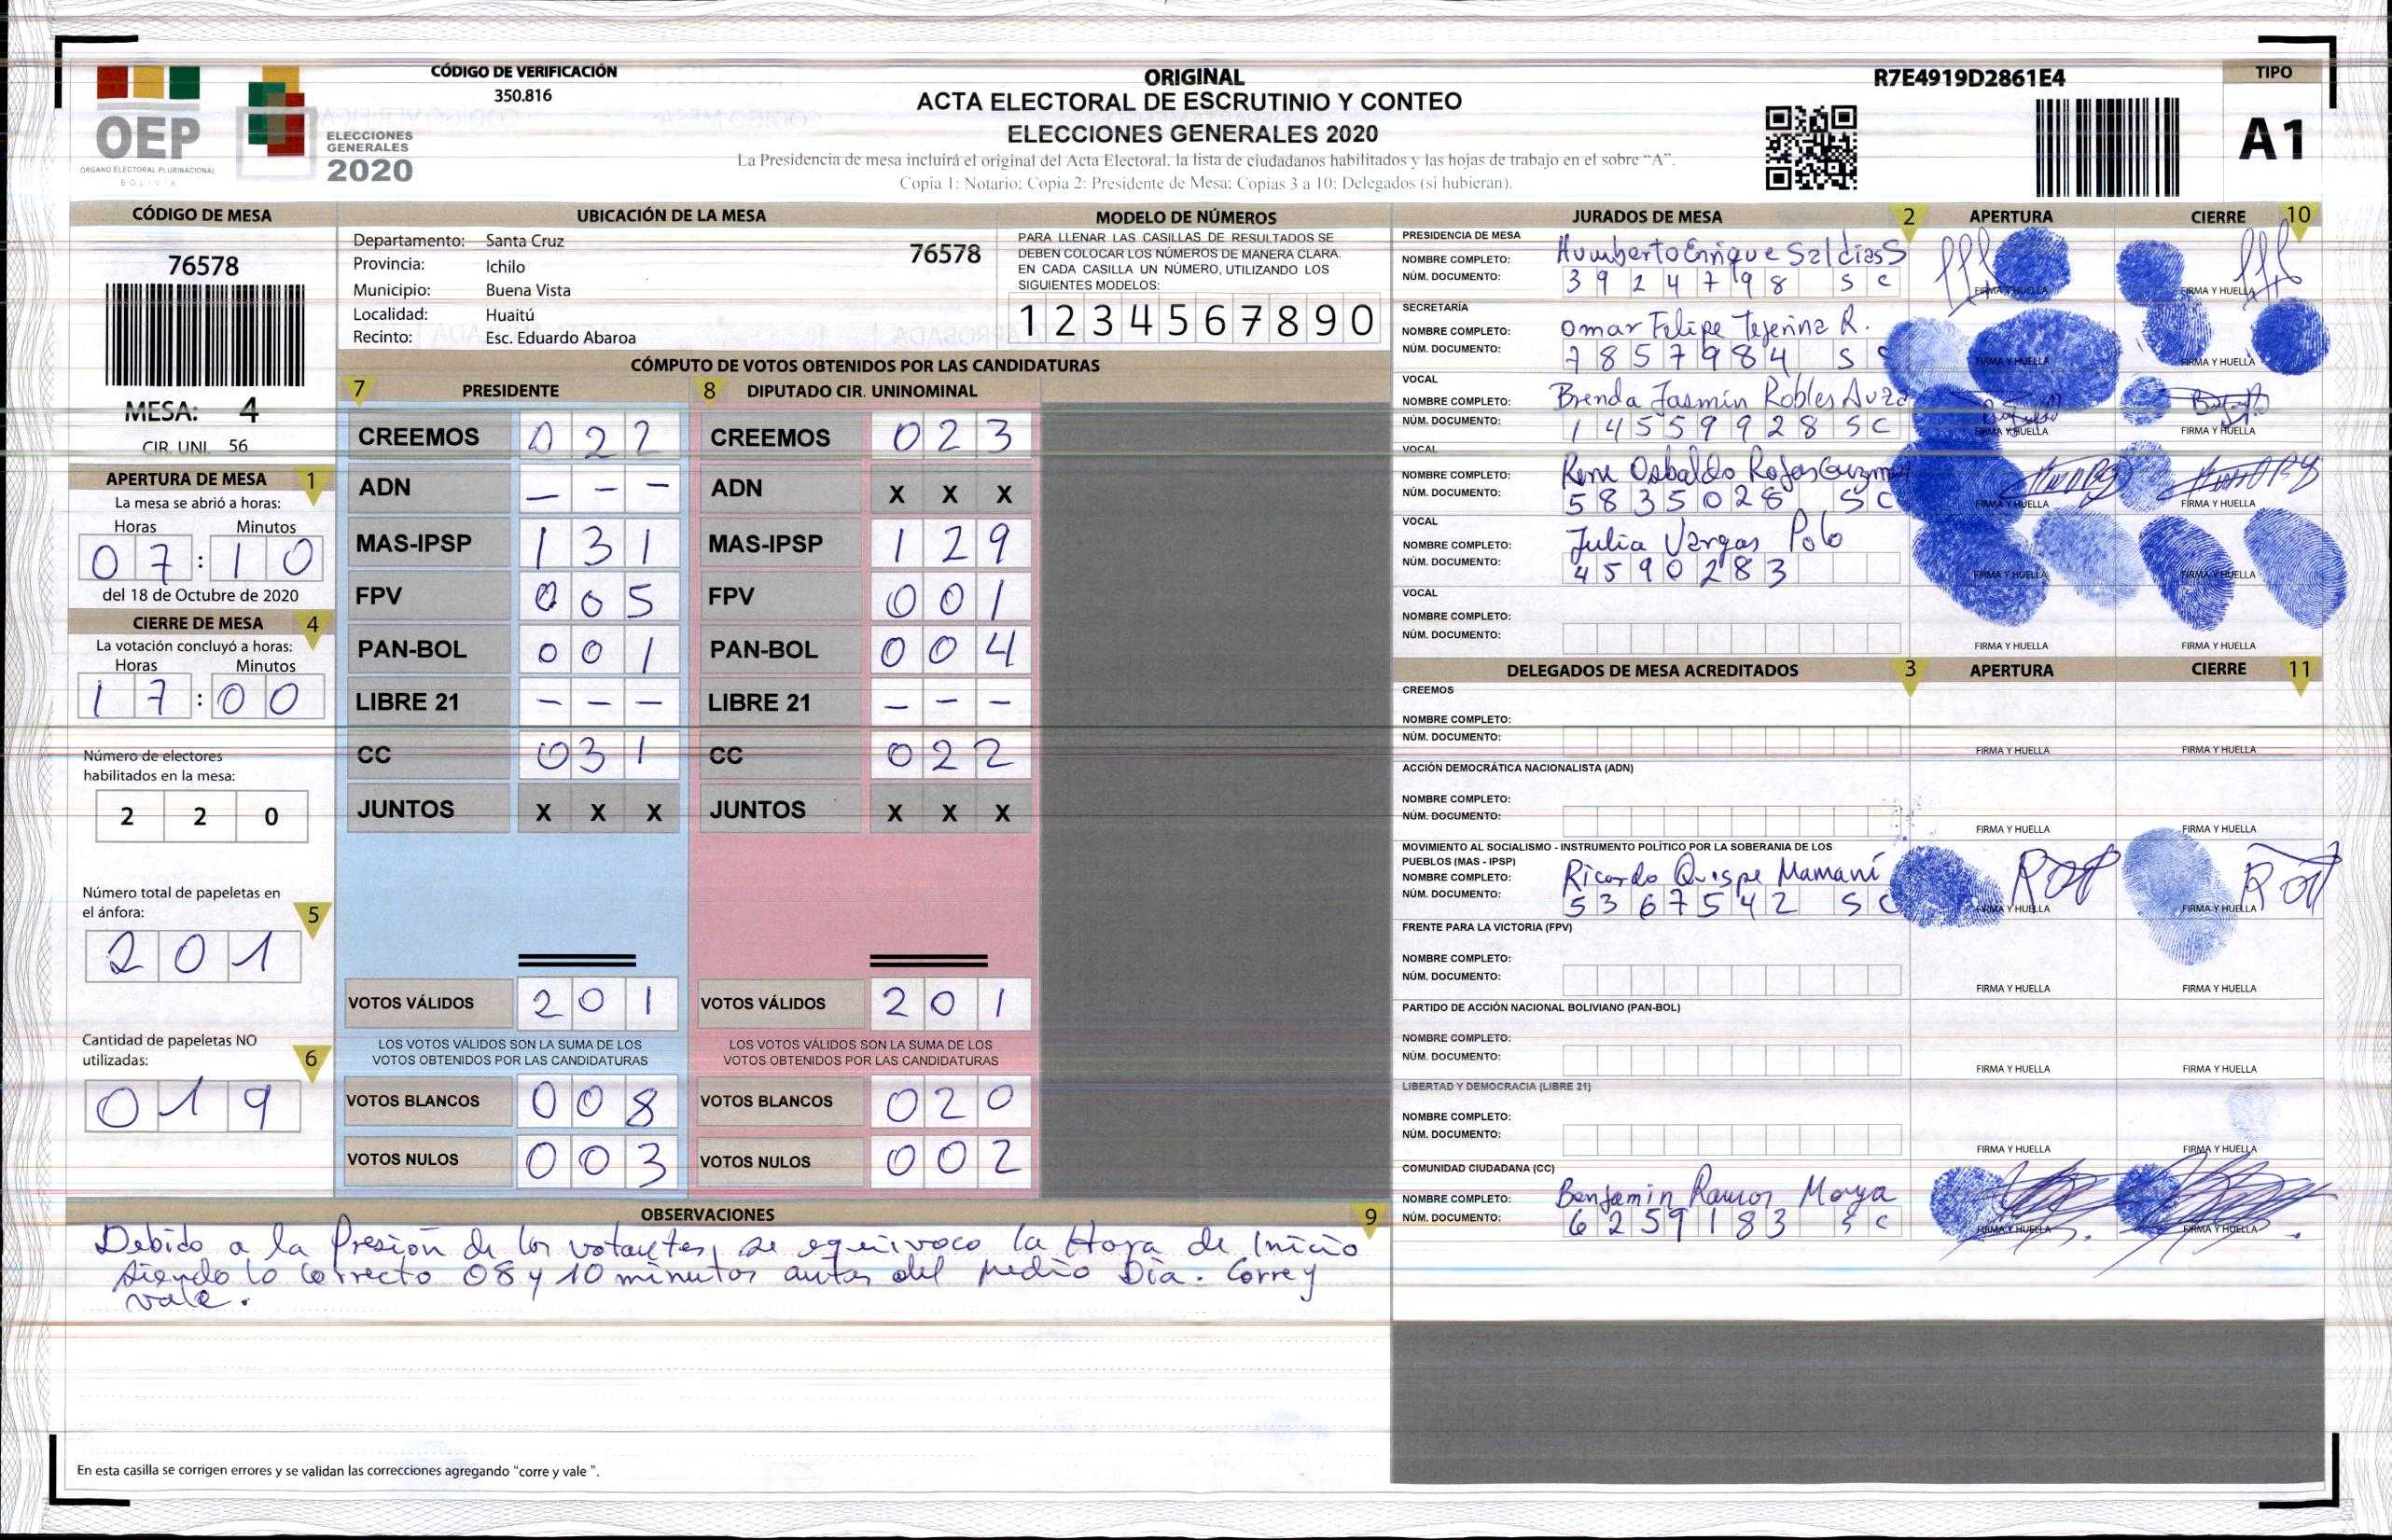 CÓDIGO DE VERIFICACIÓN
350.816
OEP
ÓRGANO ELECTORAL PLURINACIONAL
BOLIVIA
ELECCIONES
GENERALES
2020
ORIGINAL
ACTA ELECTORAL DE ESCRUTINIO Y CONTEO
ELECCIONES GENERALES 2020
La Presidencia de mesa incluirá el original del Acta Electoral, la lista de ciudadanos habilitados y las hojas de trabajo en el sobre "A".
Copia 1: Notario; Copia 2: Presidente de Mesa; Copias 3 a 10: Delegados (si hubieran).
R7E4919D2861E4
TIPO
A1
CÓDIGO DE MESA
76578
MESA: 4
CIR. UNI. 56
APERTURA DE MESA 1
La mesa se abrió a horas:
Horas Minutos
07:10
del 18 de Octubre de 2020
CIERRE DE MESA 4
La votación concluyó a horas:
Horas Minutos
17:00
Número de electores
habilitados en la mesa:
2 2 0
Número total de papeletas en
el ánfora: 5
2 0 1
Cantidad de papeletas NO
utilizadas: 6
0 1 9
UBICACIÓN DE LA MESA
Departamento: Santa Cruz 76578
Provincia: Ichilo
Municipio: Buena Vista
Localidad: Huaitú
Recinto: Esc. Eduardo Abaroa
MODELO DE NÚMEROS
PARA LLENAR LAS CASILLAS DE RESULTADOS SE
DEBEN COLOCAR LOS NÚMEROS DE MANERA CLARA.
EN CADA CASILLA UN NÚMERO, UTILIZANDO LOS
SIGUIENTES MODELOS:
1 2 3 4 5 6 7 8 9 0
CÓMPUTO DE VOTOS OBTENIDOS POR LAS CANDIDATURAS
7 PRESIDENTE 8 DIPUTADO CIR. UNINOMINAL
CREEMOS 0 2 2 CREEMOS 0 2 3
ADN — — — ADN X X X
MAS-IPSP 1 3 1 MAS-IPSP 1 2 9
FPV 0 0 5 FPV 0 0 1
PAN-BOL 0 0 1 PAN-BOL 0 0 4
LIBRE 21 — — — LIBRE 21 — — —
CC 0 3 1 CC 0 2 2
JUNTOS X X X JUNTOS X X X
VOTOS VÁLIDOS 2 0 1 VOTOS VÁLIDOS 2 0 1
LOS VOTOS VÁLIDOS SON LA SUMA DE LOS LOS VOTOS VÁLIDOS SON LA SUMA DE LOS
VOTOS OBTENIDOS POR LAS CANDIDATURAS VOTOS OBTENIDOS POR LAS CANDIDATURAS
VOTOS BLANCOS 0 0 8 VOTOS BLANCOS 0 2 0
VOTOS NULOS 0 0 3 VOTOS NULOS 0 0 2
OBSERVACIONES 9
Debido a la Presión de los votantes, se equivoco la Hora de Inicio
siendo lo correcto 08 y 10 minutos antes del medio Dia. Corre y
vale.
En esta casilla se corrigen errores y se validan las correcciones agregando "corre y vale ".
JURADOS DE MESA 2 APERTURA CIERRE 10
PRESIDENCIA DE MESA
NOMBRE COMPLETO: Humberto Enrique Saldias S
NÚM. DOCUMENTO: 3924798 SC
FIRMA Y HUELLA FIRMA Y HUELLA
SECRETARÍA
NOMBRE COMPLETO: Omar Felipe Tejerina R.
NÚM. DOCUMENTO: 7857984 SC
FIRMA Y HUELLA FIRMA Y HUELLA
VOCAL
NOMBRE COMPLETO: Brenda Jasmin Robles
NÚM. DOCUMENTO: 14559928 SC
FIRMA Y HUELLA FIRMA Y HUELLA
VOCAL
NOMBRE COMPLETO: Rene Osbaldo Rojas Guzman
NÚM. DOCUMENTO: 5835028 SC
FIRMA Y HUELLA FIRMA Y HUELLA
VOCAL
NOMBRE COMPLETO: Julia Vargas Polo
NÚM. DOCUMENTO: 4590283
FIRMA Y HUELLA FIRMA Y HUELLA
VOCAL
NOMBRE COMPLETO:
NÚM. DOCUMENTO:
FIRMA Y HUELLA FIRMA Y HUELLA
DELEGADOS DE MESA ACREDITADOS 3 APERTURA CIERRE 11
CREEMOS
NOMBRE COMPLETO:
NÚM. DOCUMENTO:
FIRMA Y HUELLA FIRMA Y HUELLA
ACCIÓN DEMOCRÁTICA NACIONALISTA (ADN)
NOMBRE COMPLETO:
NÚM. DOCUMENTO:
FIRMA Y HUELLA FIRMA Y HUELLA
MOVIMIENTO AL SOCIALISMO - INSTRUMENTO POLÍTICO POR LA SOBERANIA DE LOS
PUEBLOS (MAS - IPSP)
NOMBRE COMPLETO: Ricardo Quispe Mamaní
NÚM. DOCUMENTO: 5367542 SC
FIRMA Y HUELLA FIRMA Y HUELLA
FRENTE PARA LA VICTORIA (FPV)
NOMBRE COMPLETO:
NÚM. DOCUMENTO:
FIRMA Y HUELLA FIRMA Y HUELLA
PARTIDO DE ACCIÓN NACIONAL BOLIVIANO (PAN-BOL)
NOMBRE COMPLETO:
NÚM. DOCUMENTO:
FIRMA Y HUELLA FIRMA Y HUELLA
LIBERTAD Y DEMOCRACIA (LIBRE 21)
NOMBRE COMPLETO:
NÚM. DOCUMENTO:
FIRMA Y HUELLA FIRMA Y HUELLA
COMUNIDAD CIUDADANA (CC)
NOMBRE COMPLETO: Benjamin Ramos Moya
NÚM. DOCUMENTO: 6259183 SC
FIRMA Y HUELLA FIRMA Y HUELLA